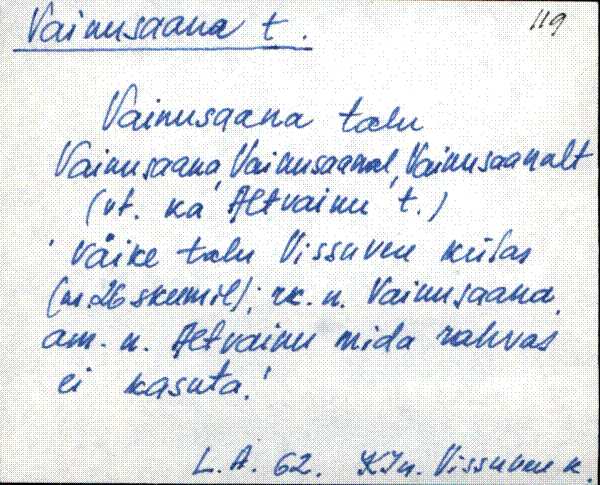 Vainusaana t.
119
Vainusaana talu
Vainusaana, Vainusaanal, Vainusaanalt
(vt. ka Altvainu t.)
Väike talu Vissuvere külas
(nr. 26 skeemil); rk. n. Vainusaana,
am. n. Altvainu mida rahvas
ei kasuta.
L.A. 62. KJn. Vissuvere k.